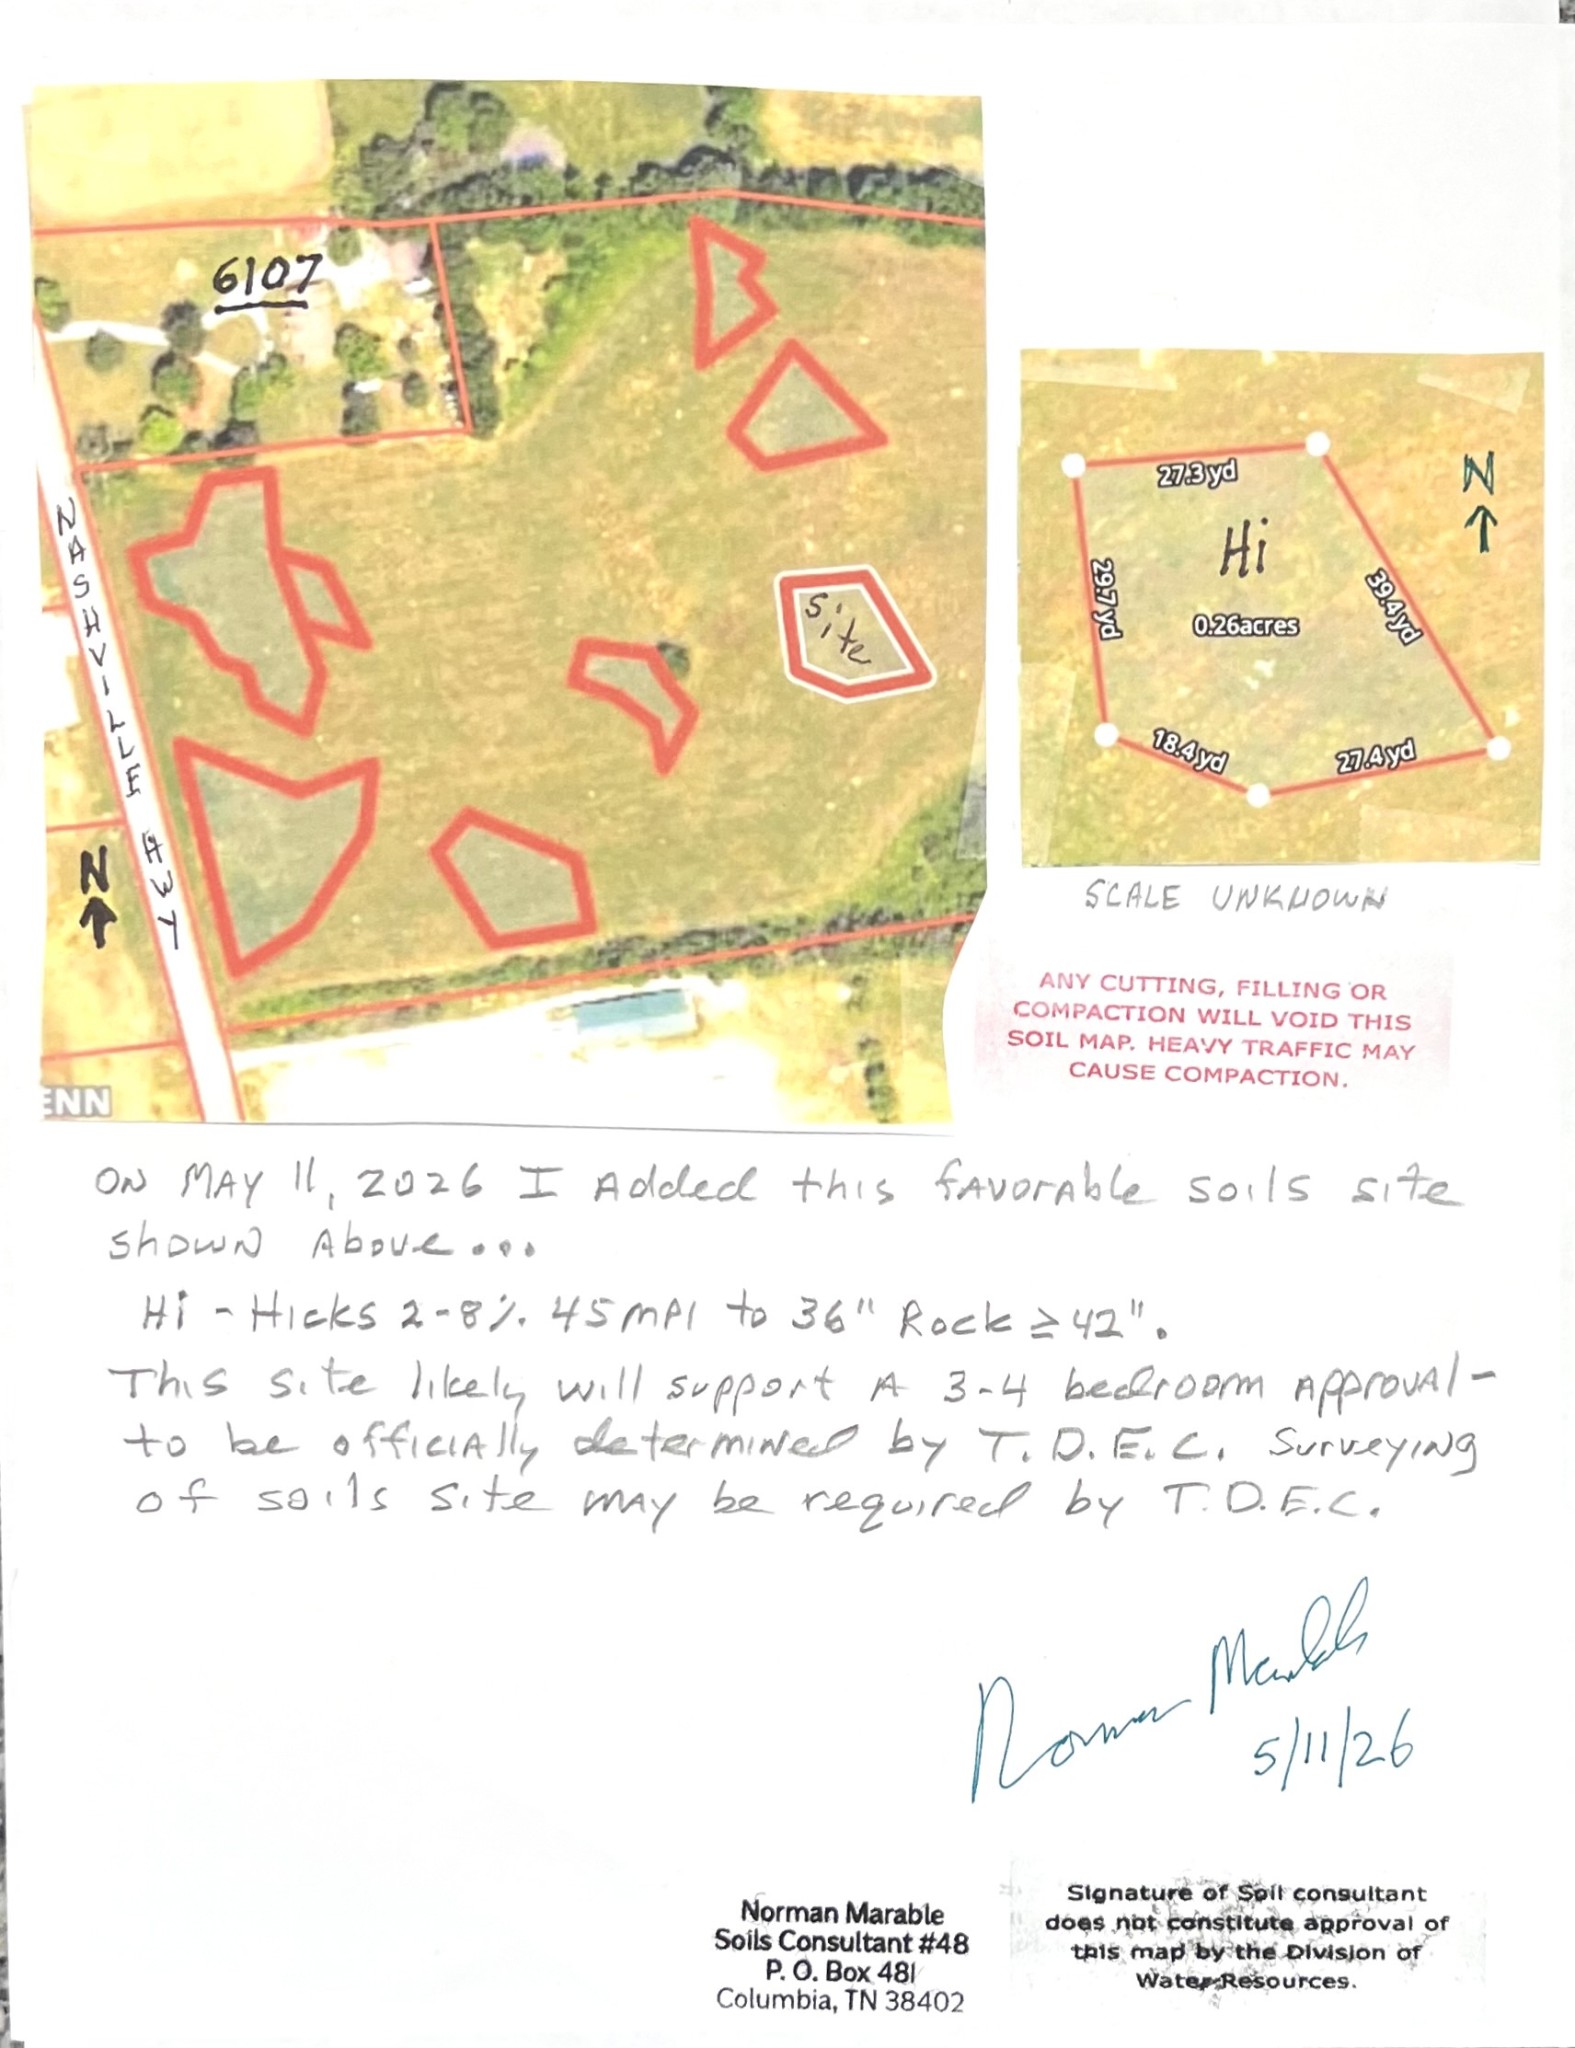 6107
NASHVILLE HWY
N
ENN
27.3 yd
N
Hi
29.7 yd
39.4 yd
0.26 acres
Site
18.4 yd
27.4 yd
SCALE UNKNOWN
ANY CUTTING, FILLING OR
COMPACTION WILL VOID THIS
SOIL MAP. HEAVY TRAFFIC MAY
CAUSE COMPACTION.
ON MAY 11, 2026 I Added this favorable soils site
shown Above...
Hi - Hicks 2-8% 45 MPI to 36" Rock ≥ 42".
This site likely will support A 3-4 bedroom Approval-
to be officially determined by T.D.E.C. Surveying
of soils site may be required by T.D.E.C.
Norman Marable
5/11/26
Norman Marable
Soils Consultant #48
P. O. Box 481
Columbia, TN 38402
Signature of Soil consultant
does not constitute approval of
this map by the Division of
Water Resources.